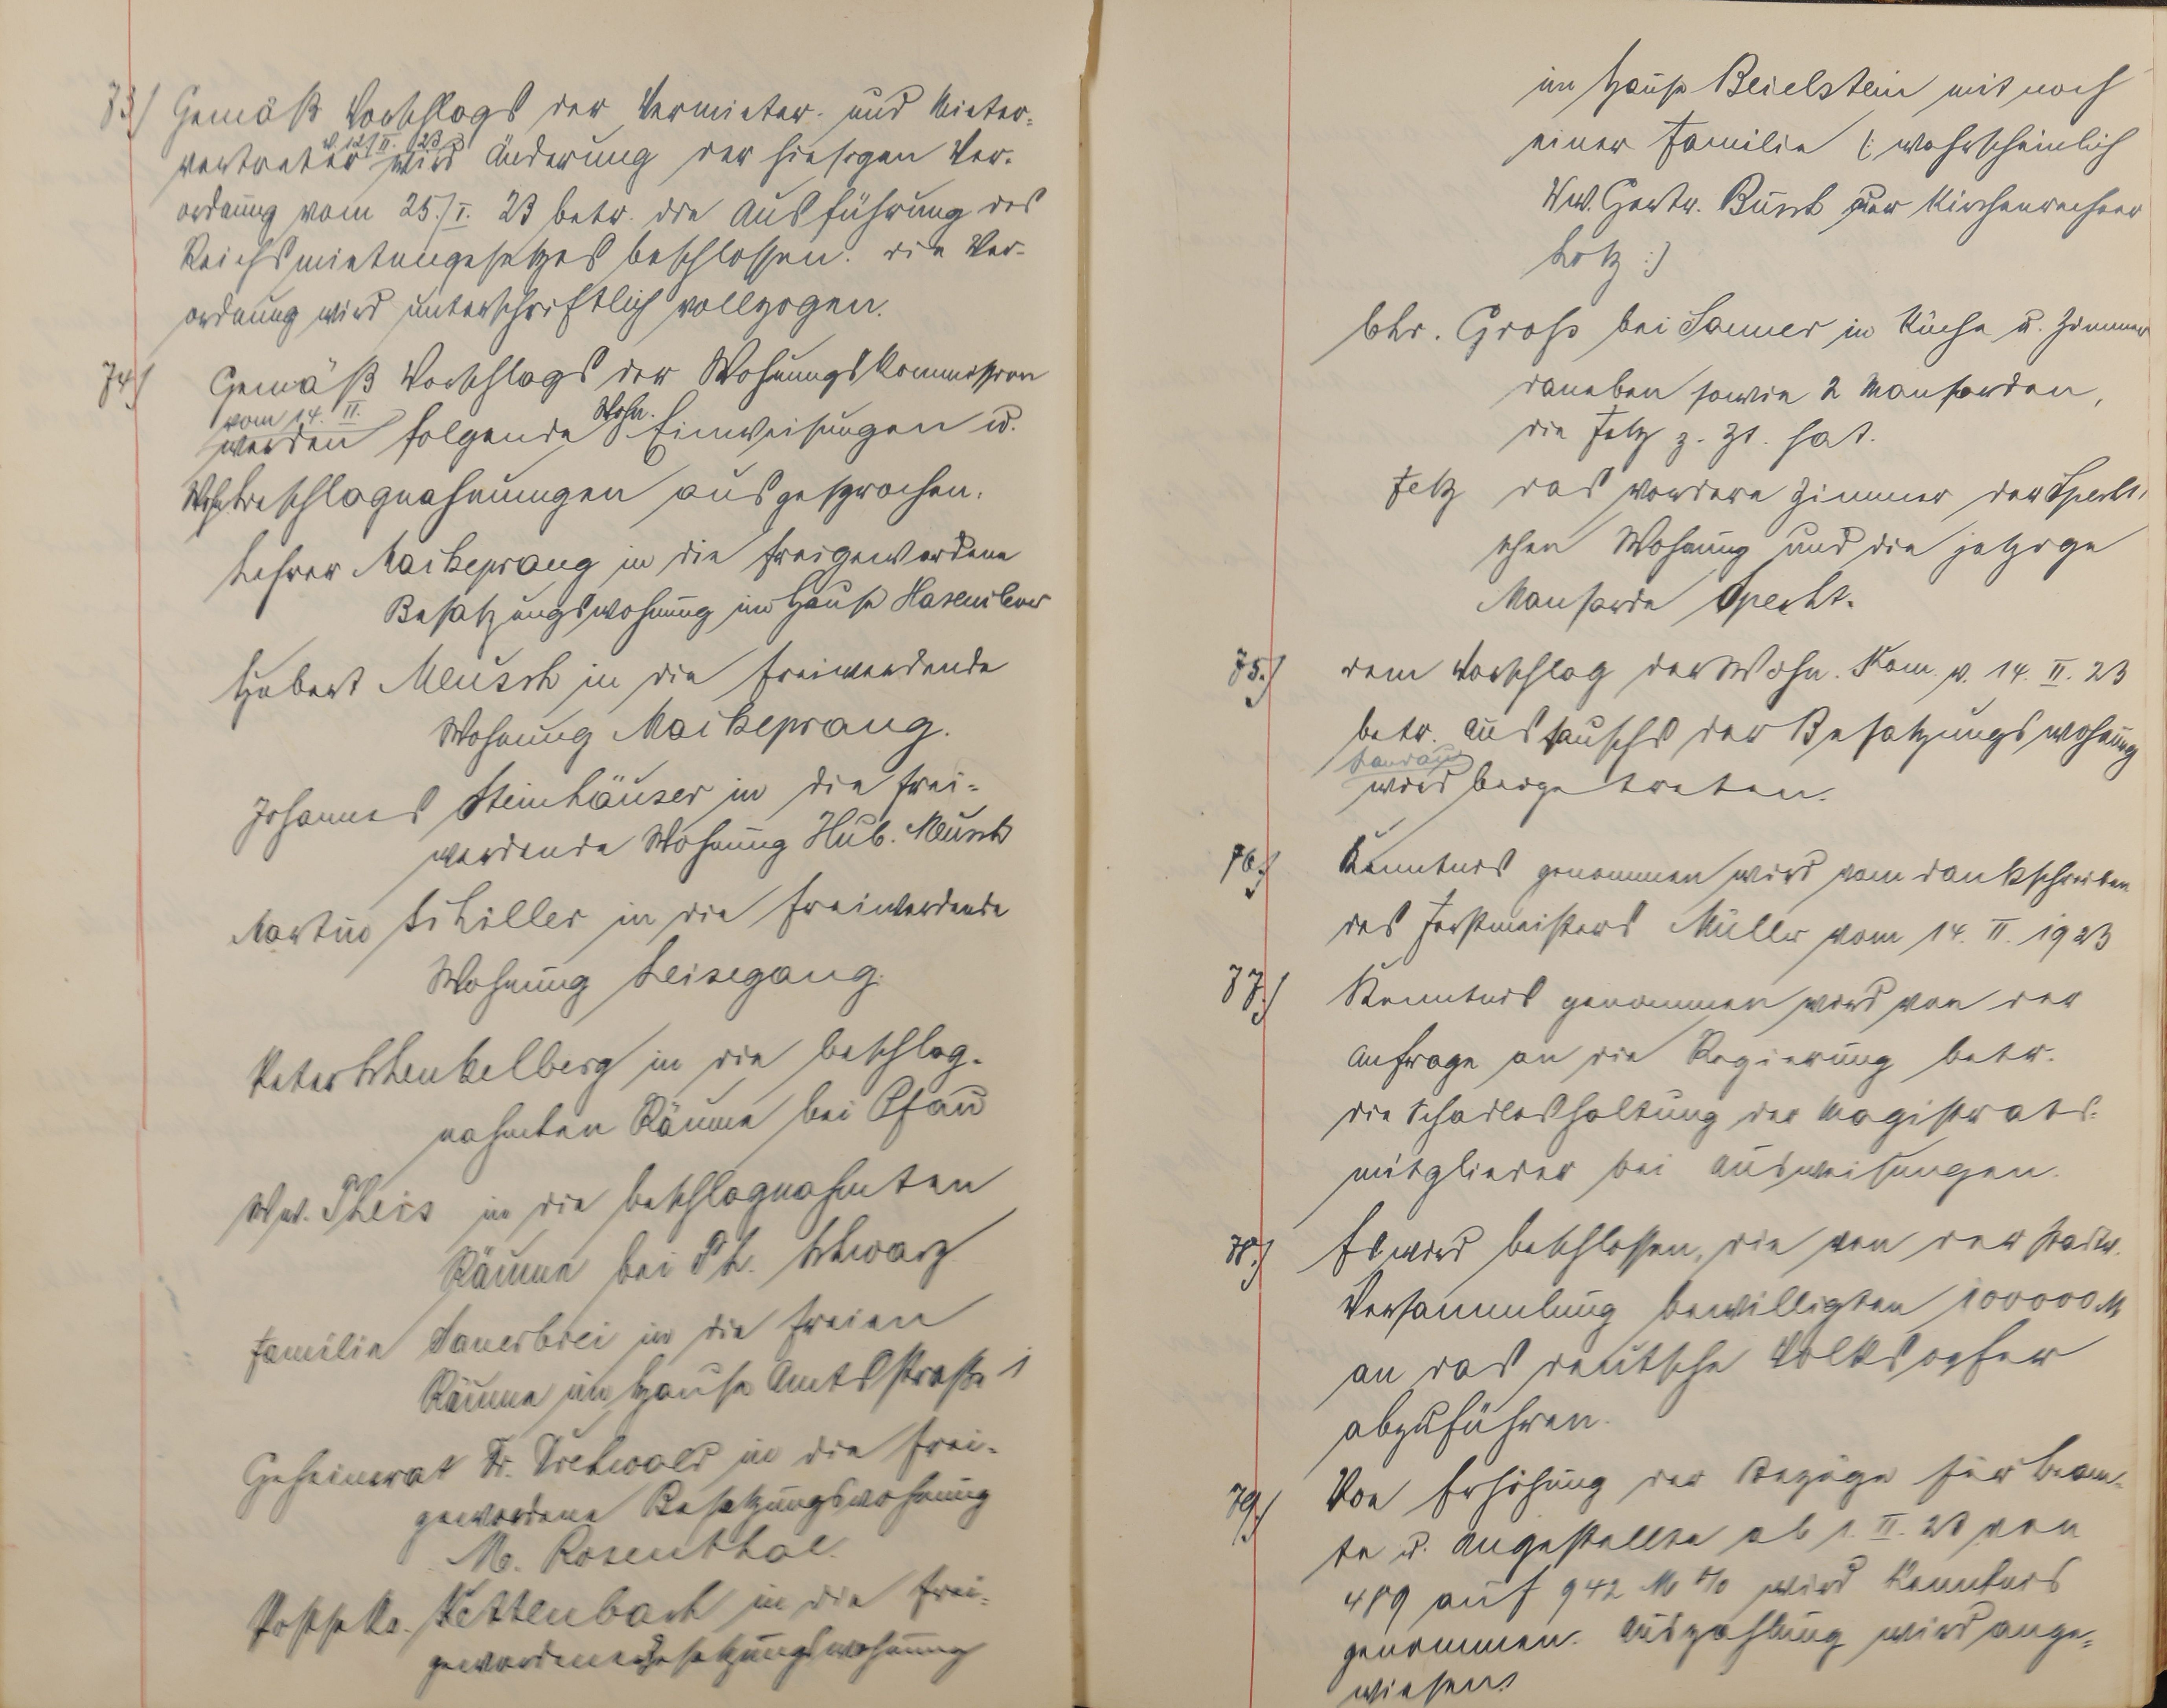 73.) Gemäß Vorschlags der Vermieter- und Mieter-
v. 12/II. 23
vertreter wird Änderung der hiesigen Ver-
ordnung vom 25./I. 23 betr. die Ausführung des
Reichsmietengesetzes beschlossen. Die Ver-
ordnung wird unterschriftlich vollzogen.
74.) Gemäß Vorschlags der Wohnungskommission
vom 14. II. Wohn.
werden folgende Einweisungen u.
beschlagnahmungen ausgesprochen.
Lehrer Mackeprang in die freigewordene
Besatzungswohnung im Hause
Hubert Meusch in die freiwerdende
Wohnung Mackeprang.
Johannes Steinhäuser in die frei-
werdende Wohnung Hub. Meusch
Martin Schiller in die freiwerdende
Wohnung Leisegang.
Peter Schenkelberg in die beschlag-
nahmten Räume bei Pfau
Ww. Theis in die beschlagnahmten
Räume bei Ph. Schwarz
Familie Sauerbrei in die freien
Räume im Hause Amtsstraße 1
Geheimrat Dr. in die frei-
gewordene Besatzungswohnung
M. Rosenthal.
Kettenbach in die frei-
gewordene Besatzungswohnung
im Hause Beielstein mit noch
einer Familie (: wahrscheinlich
Ww. Gertr. Busch oder Kirchenrechner
Lotz :)
Lehr. Groß bei Sauner in Küche u. Zimmer
daneben sowie 2 Mansarden,
die Fetz z. Zt. hat.
Fetz das vordere Zimmer der Specht-
schen Wohnung und die jetzige
Mansarde Specht.
75.) Dem Vorschlag der Wohn. Kom. v. 14. II. 23
betr. Austauschs der Besatzungswohnung
wird beigetreten.
76.) Kenntnis genommen wird vom Dankschreiben
des Forstmeisters Müller vom 14. II. 1923
77.) Kenntnis genommen wird von der
Anfrage an die Regierung betr.
die Schadloshaltung der Magistrats-
mitglieder bei Ausweisungen.
78.) Es wird beschlossen, die von der Stadtv.
Versammlung bewilligten 100000 M
an das deutsche Volksopfer
abzuführen.
79.) Von Erhöhung der Bezüge für Beam-
te u. Angestellte ab 1. II. 23 von
489 auf 942 % wird Kenntnis
genommen. Auszahlung wird ange-
wiesen.